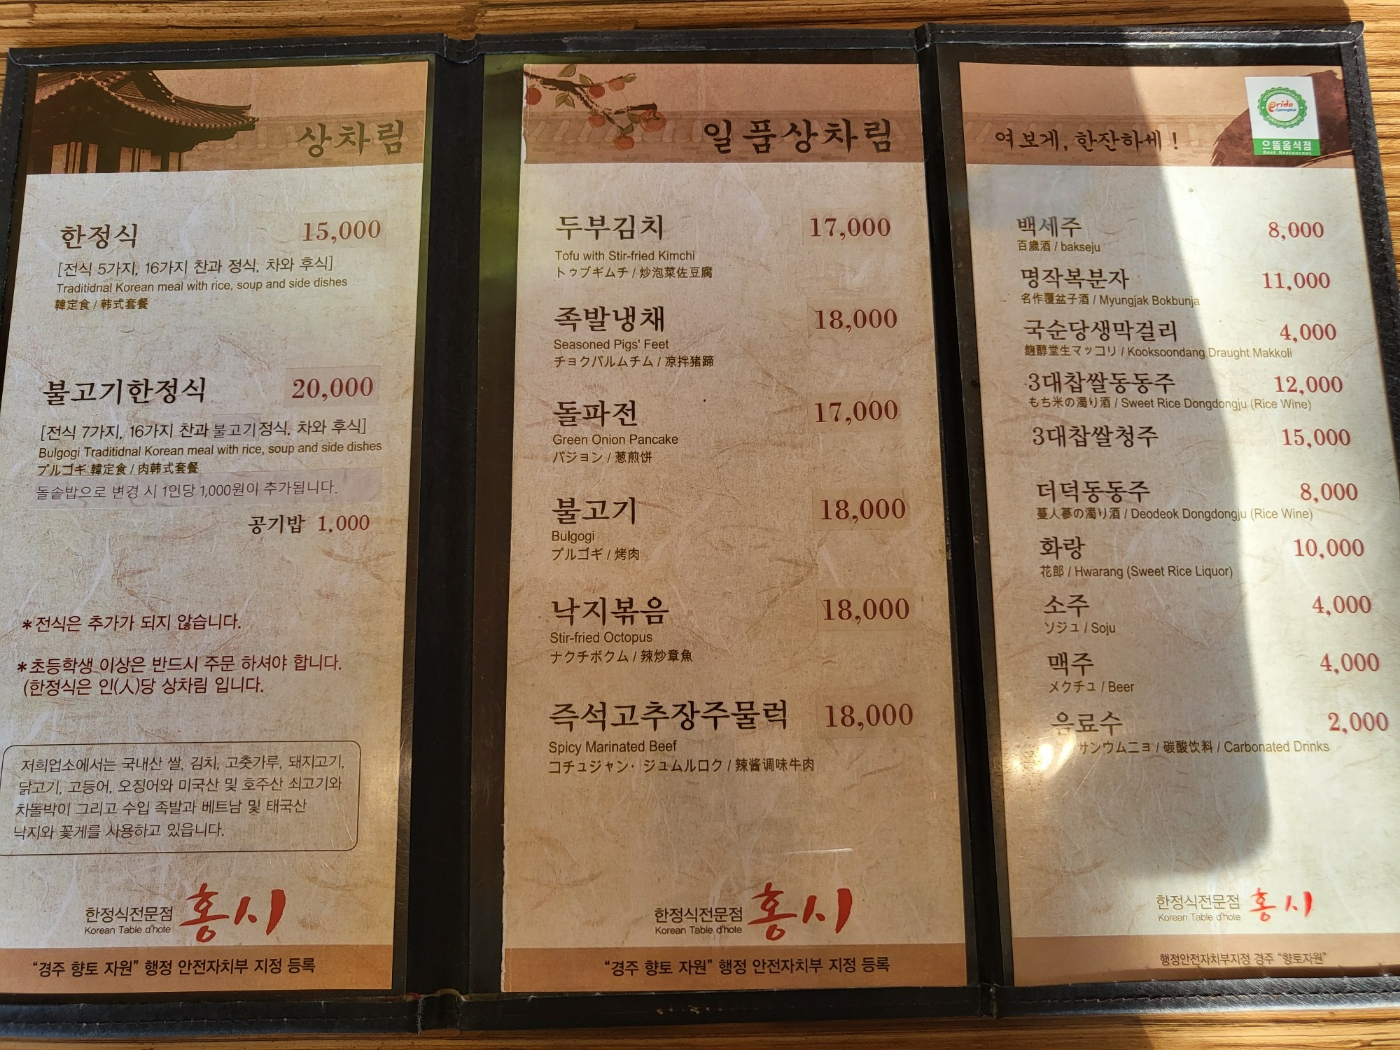 상차림
한정식 15,000
[전식 5가지, 16가지 찬과 정식, 차와 후식]
Traditidnal Korean meal with rice, soup and side dishes
韓定食 / 韩式套餐
불고기한정식 20,000
[전식 7가지, 16가지 찬과 불고기정식, 차와 후식]
Bulgogi Traditidnal Korean meal with rice, soup and side dishes
プルゴギ 韓定食 / 肉韩式套餐
돌솥밥으로 변경 시 1인당 1,000원이 추가됩니다.
공기밥 1,000
*전식은 추가가 되지 않습니다.
*초등학생 이상은 반드시 주문 하셔야 합니다.
(한정식은 인(人)당 상차림 입니다.
저희업소에서는 국내산 쌀, 김치, 고춧가루, 돼지고기,
닭고기, 고등어, 오징어와 미국산 및 호주산 쇠고기와
차돌박이 그리고 수입 족발과 베트남 및 태국산
낙지와 꽃게를 사용하고 있읍니다.
한정식전문점 홍시
Korean Table d'hote
“경주 향토 자원” 행정 안전자치부 지정 등록
일품상차림
두부김치 17,000
Tofu with Stir-fried Kimchi
トゥブギムチ / 炒泡菜佐豆腐
족발냉채 18,000
Seasoned Pigs' Feet
チョクパルムチム / 凉拌猪蹄
돌파전 17,000
Green Onion Pancake
パジョン / 葱煎饼
불고기 18,000
Bulgogi
プルゴギ / 烤肉
낙지볶음 18,000
Stir-fried Octopus
ナクチボクム / 辣炒章魚
즉석고추장주물럭 18,000
Spicy Marinated Beef
コチュジャン・ジュムルロク / 辣酱调味牛肉
한정식전문점 홍시
Korean Table d'hote
“경주 향토 자원” 행정 안전자치부 지정 등록
여보게, 한잔하세!
으뜸음식점
Best Restaurant
백세주 8,000
百歲酒 / bakseju
명작복분자 11,000
名作覆盆子酒 / Myungjak Bokbunja
국순당생막걸리 4,000
麴醇堂生マッコリ / Kooksoondang Draught Makkoli
3대찹쌀동동주 12,000
もち米の濁り酒 / Sweet Rice Dongdongju (Rice Wine)
3대찹쌀청주 15,000
더덕동동주 8,000
蔓人蔘の濁り酒 / Deodeok Dongdongju (Rice Wine)
화랑 10,000
花郎 / Hwarang (Sweet Rice Liquor)
소주 4,000
ソジュ / Soju
맥주 4,000
メクチュ / Beer
음료수 2,000
サンウムニョ / 碳酸饮料 / Carbonated Drinks
한정식전문점 홍시
Korean Table d'hote
행정안전자치부지정 경주 “향토자원”